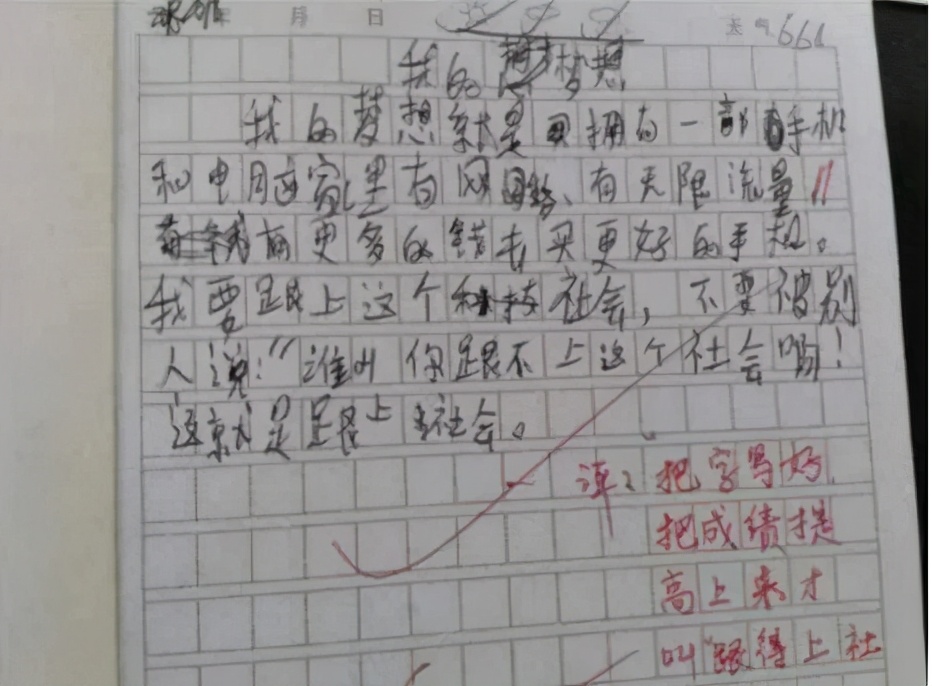 年 月 日 天气 661
我的梦想
我的梦想就是拥有一部手机
和电用这宽里有网络、有无限流量
有更多的错去买更好的手机。
我要跟上这个科技社会,不要被别
人说:“谁叫你跟不上这个社会吗!
这就是跟上社会。
评:把字写好,
把成绩提
高上来才
叫“跟得上社